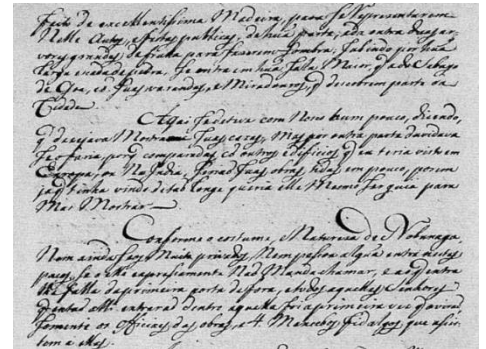 feito de excellentissima Madeira, para se Representarem
Nelle Autos, e festas publicas, de huã parte, e da outra duas ar-
vores grandes de fruta para fazerem sombra, subindo por huã
larga escada de pedra, se entra em huã Salla Maior, q̃ a de Sabayo
de Goa, cõ suas varandas, e Miradouros, q̃ descobrem parte da
Cidade.
Aqui se deteve com Nosco hum pouco, dizendo,
q̃ desejava Mostrarnos suas cazas, Mas por outra parte duvidava
se o faria porq̃ comparadas cõ outros edificios q̃ eu teria visto em
Europa, ou Na India, serião suas obras tidas em pouco, porem
ja q̃ tinha vindo de tão longe queria elle Mesmo ser guia para
Mas Mostrar.
Conforme o costume, e Natureza de Nobunaga,
Nem ainda seus Muito privados, Nem pessoa algũa entra nestes
paços, se elle expresamente Não Manda chamar, e a q̃ entra
lhe falla da primeira porta de fora, e todos aquelles Senhores
q̃ entrão alli entrarão dentro aquella foi a primeira vez q̃ avião
somente os officiaes das obras, e 4. Mancebos fidalgos que assis-
tem a elles.